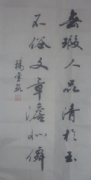 無瑕人品清於玉
不俗文章澹似僊